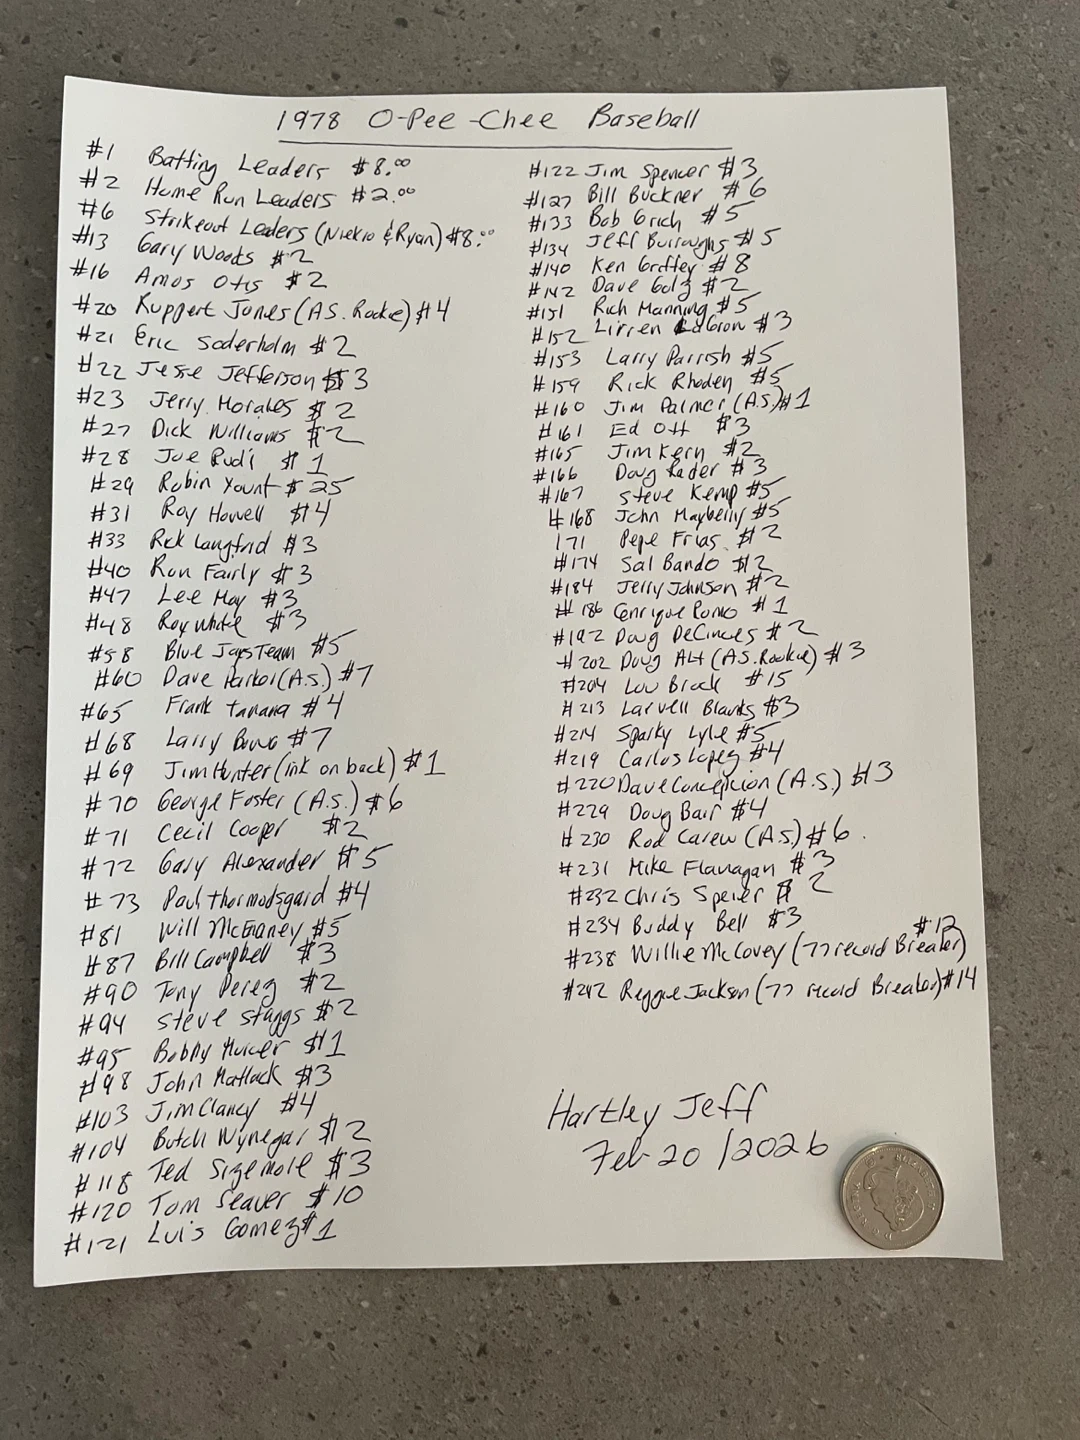 1978 O-Pee-Chee Baseball
#1 Batting Leaders $8.00
#2 Home Run Leaders $2.00
#6 Strikeout Leaders (Niekro & Ryan) $8.00
#13 Gary Woods $2
#16 Amos Otis $2
#20 Ruppert Jones (A.S. Rookie) $4
#21 Eric Soderholm $2
#22 Jesse Jefferson $3
#23 Jerry Morales $2
#27 Dick Williams $2
#28 Joe Rudi $1
#29 Robin Yount $25
#31 Roy Howell $4
#33 Rick Langford $3
#40 Ron Fairly $3
#47 Lee May $3
#48 Roy White $3
#58 Blue Jays Team $5
#60 Dave Parker (A.S.) $7
#65 Frank Tanana $4
#68 Larry Bowa $7
#69 Jim Hunter (ink on back) $1
#70 George Foster (A.S.) $6
#71 Cecil Cooper $2
#72 Gary Alexander $5
#73 Paul Thormodsgard $4
#81 Will McEnaney $5
#87 Bill Campbell $3
#90 Tony Perez $2
#94 Steve Staggs $2
#95 Bobby Murcer $1
#98 John Matlack $3
#103 Jim Clancy $4
#104 Butch Wynegar $2
#118 Ted Sizemore $3
#120 Tom Seaver $10
#121 Luis Gomez $1
#122 Jim Spencer $3
#127 Bill Buckner $6
#133 Bob Grich $5
#134 Jeff Burroughs $5
#140 Ken Griffey $8
#142 Dave Golz $2
#151 Rich Manning $5
#152 Lirren LaGrow $3
#153 Larry Parrish $5
#159 Rick Rhoden $5
#160 Jim Palmer (A.S.) $1
#161 Ed Ott $3
#165 Jim Kern $2
#166 Doug Rader $3
#167 Steve Kemp $5
#168 John Mayberry $5
171 Pepe Frias $2
#174 Sal Bando $2
#184 Jerry Johnson $2
#186 Enrique Romo $1
#192 Doug DeCinces $2
#202 Doug Alt (A.S. Rookie) $3
#204 Lou Brock $15
#213 Larvell Blanks $3
#214 Sparky Lyle $5
#219 Carlos Lopez $4
#220 Dave Concepcion (A.S.) $3
#229 Doug Bair $4
#230 Rod Carew (A.S.) $6
#231 Mike Flanagan $3
#232 Chris Speier $2
#234 Buddy Bell $3
#238 Willie McCovey (77 record Breaker) $12
#242 Reggie Jackson (77 record Breaker) $14
Hartley Jeff
Feb 20/2026